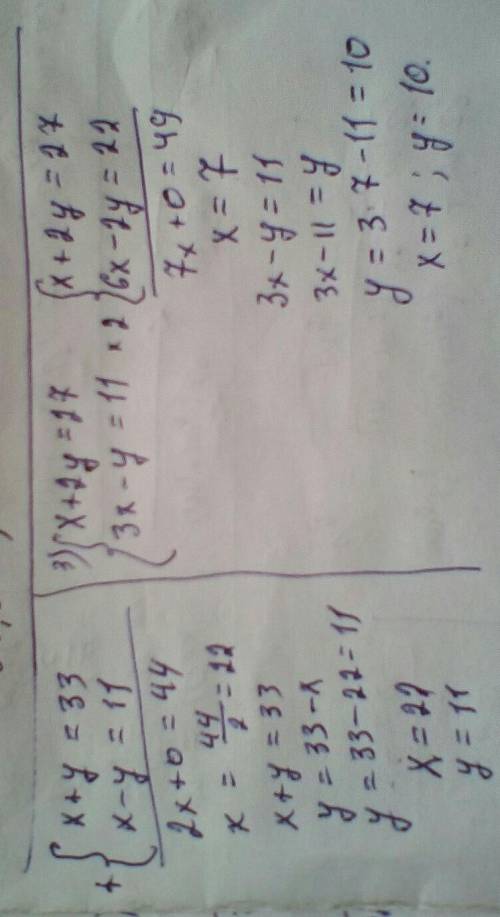 + { x + y = 33
x - y = 11
2x + 0 = 44
x = 44/2 = 22
x + y = 33
y = 33 - x
y = 33 - 22 = 11
x = 22
y = 11
3) { x + 2y = 27
3x - y = 11 × 2
{ x + 2y = 27
6x - 2y = 22
7x + 0 = 49
x = 7
3x - y = 11
3x - 11 = y
y = 3·7 - 11 = 10
x = 7 ; y = 10.